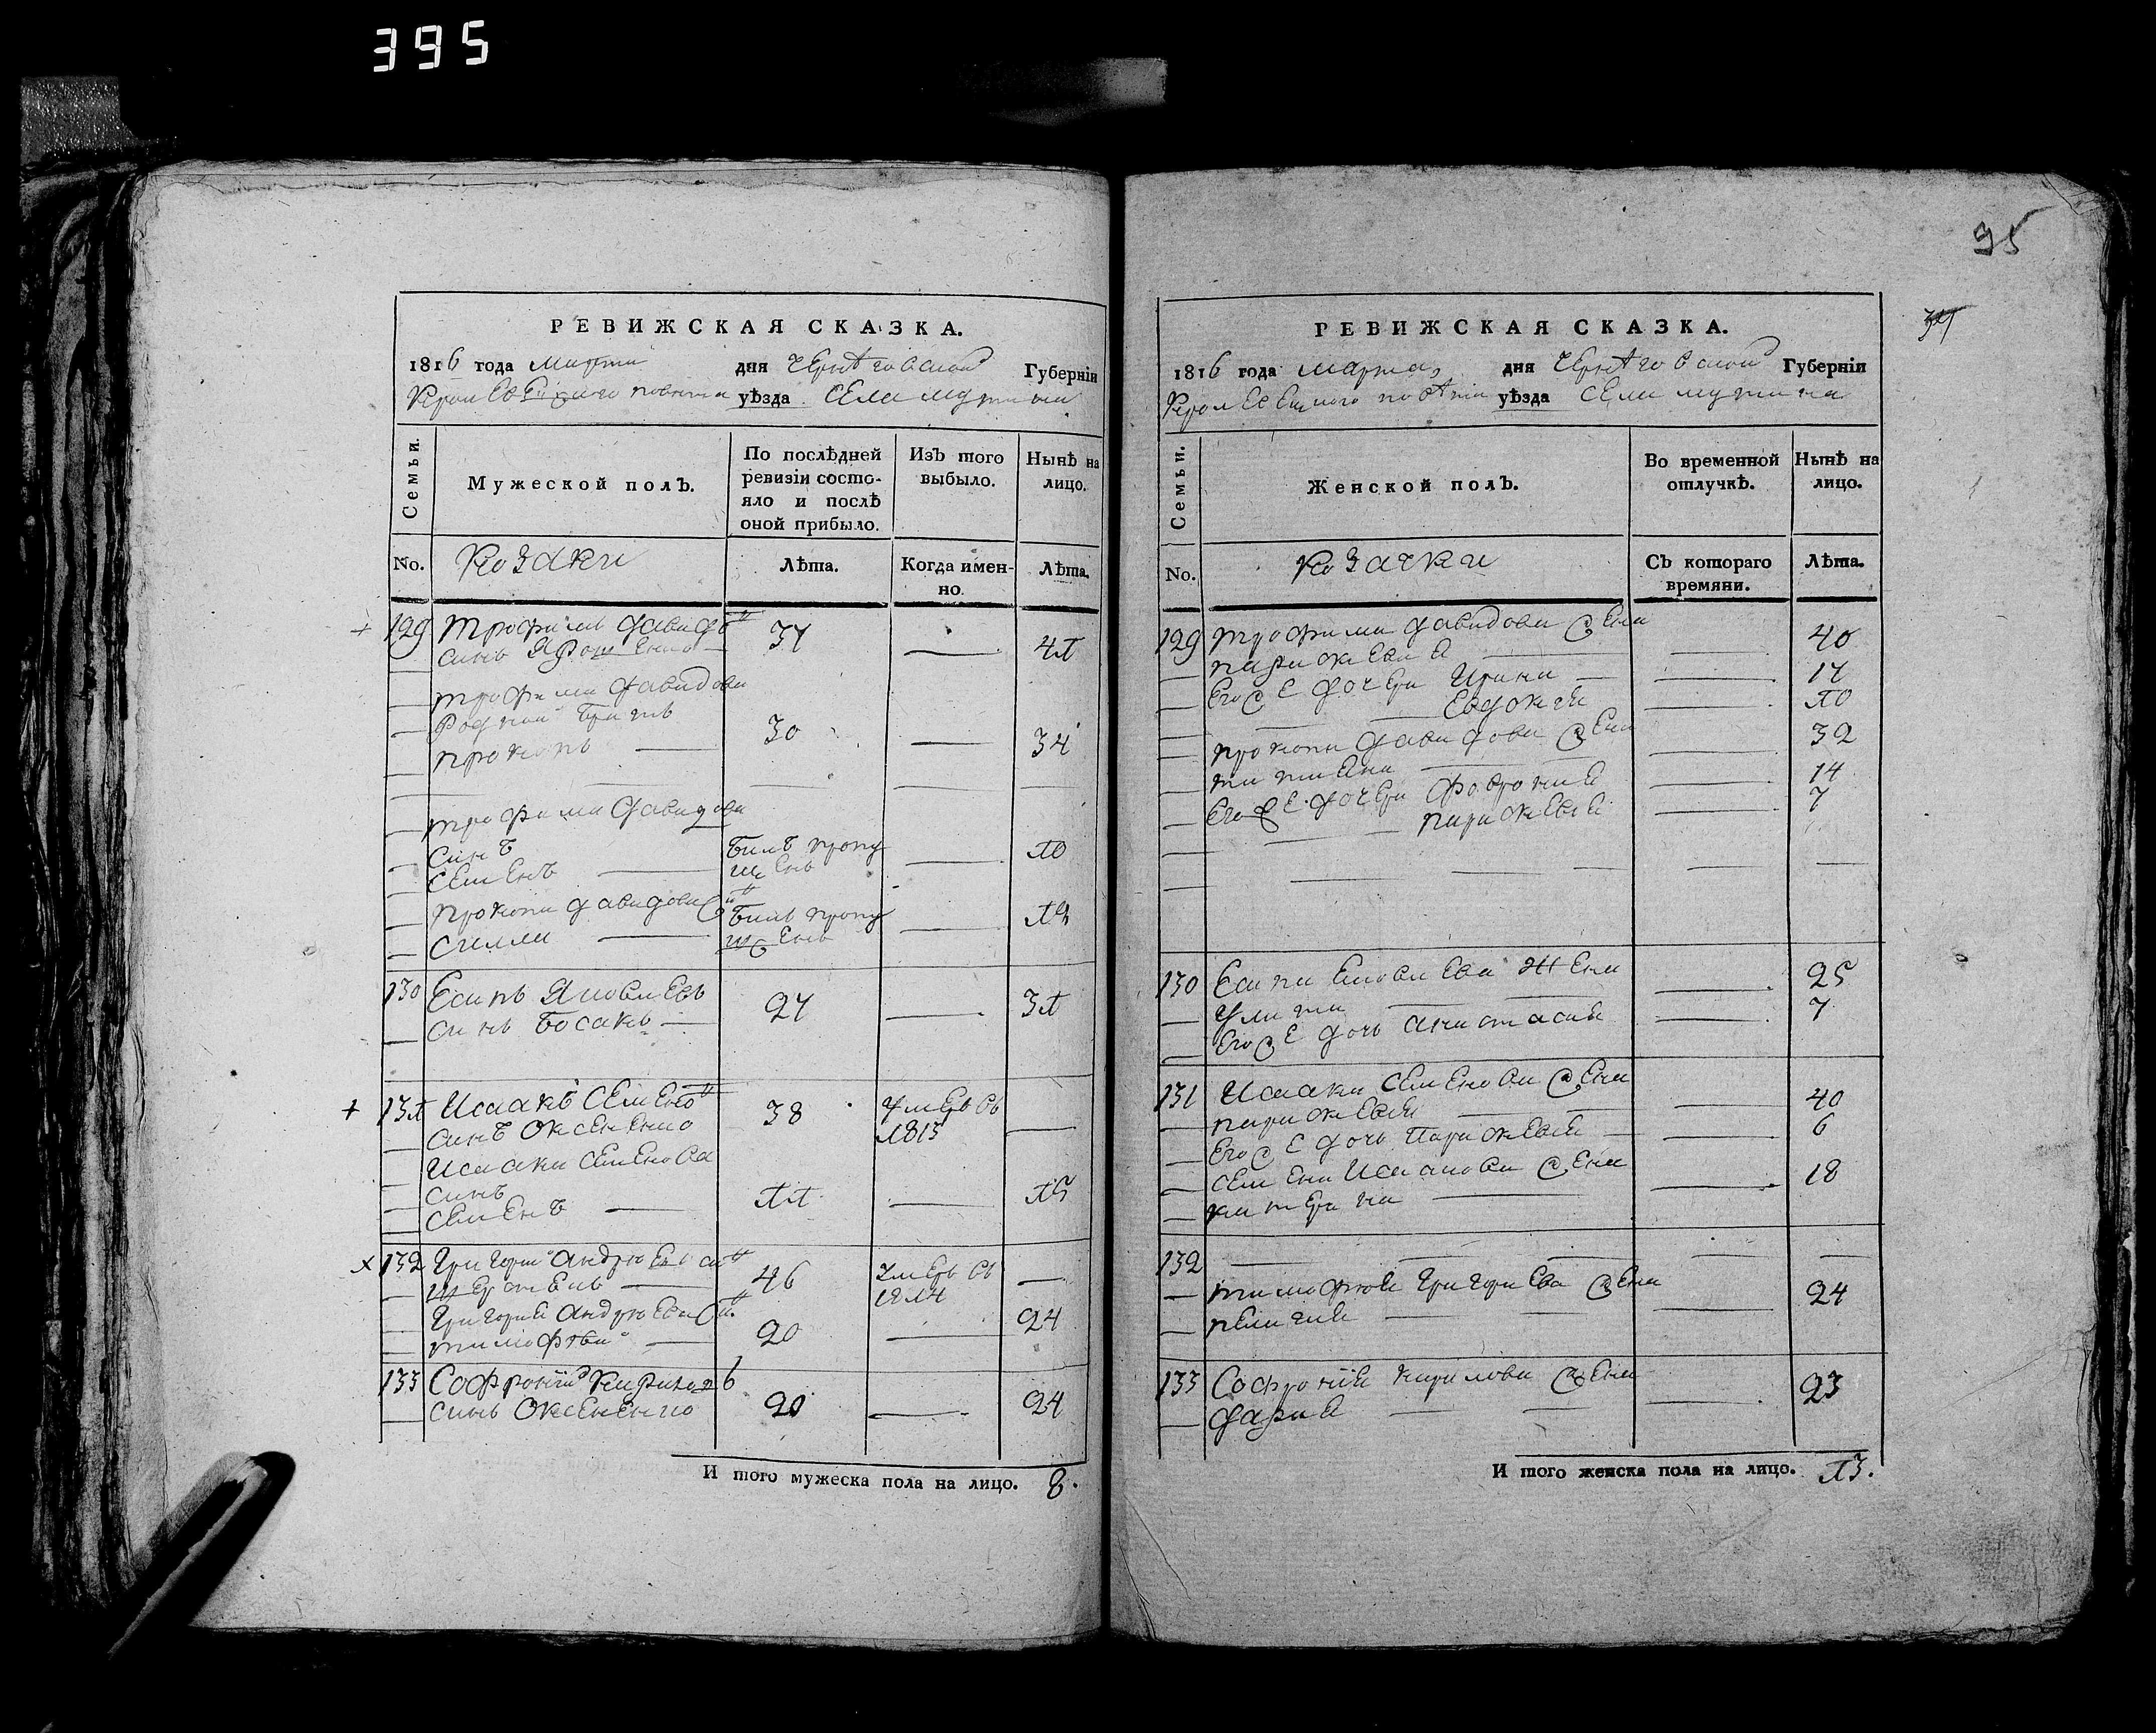 395
95
РЕВИЖСКАЯ СКАЗКА.
1816 года марта дня Чернѣговской Губерніи
Кролевецкого повета уѣзда Села мутина
Семьи.
Мужеской полъ.
По послѣдней ревизіи состо-
яло и послѣ
оной прибыло.
Изъ того
выбыло.
Нынѣ на
лицо.
No.
Козаки
Лѣта.
Когда имен-
но.
Лѣта.
129 Трофимъ Давидовъ 37 41
синъ Ярошенко
Трофима Давидова
Родной братъ
Прокопъ 30 34
Трофима Давидова
Синъ Билъ пропу
Семенъ щенъ 10
Прокопа Давидова Билъ пропу 12
Силла щенъ
130 Есипъ Яковлевъ 27 31
синъ Босакъ
131 Исаакъ Семенов 38 умеръ въ
синъ Оксененко 1813
Исаака Семенова
Синъ
Семенъ 11 15
132 Григорий Андреевъ 46 умеръ въ
1814
Григория Андреева
Тимофѣй 20 24
133 Софроній Кирилов 20 24
синъ Оксененко
И того мужеска пола на лицо. 8.
РЕВИЖСКАЯ СКАЗКА.
1816 года марта, дня Чернѣговской Губерніи
Кролевецкого повѣта уѣзда Села мутина
Семьи.
Женской полъ.
Во временной
отлучкѣ.
Нынѣ на
лицо.
No.
Козачки
Съ котораго
времяни.
Лѣта.
129 Трофима Давидова жена 40
Параскевия
Его же дочери Ирина 17
Евдокия 10
Прокопа Давидова жена 32
Татияна
Его же дочери Феврония 14
Параскевия 7
130 Есипа Яковлева жена 25
Улита
Его же дочь Анастасия 7
131 Исаака Семенова жена 40
Параскевия
Его же дочь Параскевия 6
Семена Исаакова жена 18
Катерина
132
Тимофея Григориева жена 24
Пелагия
133 Софрония Кирилова жена 23
Дария
И того женска пола на лицо. 13.